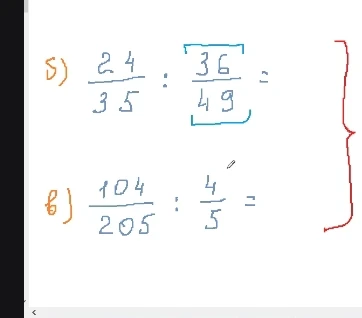 б) 24/35 : 36/49 =
в) 104/205 : 4/5 =